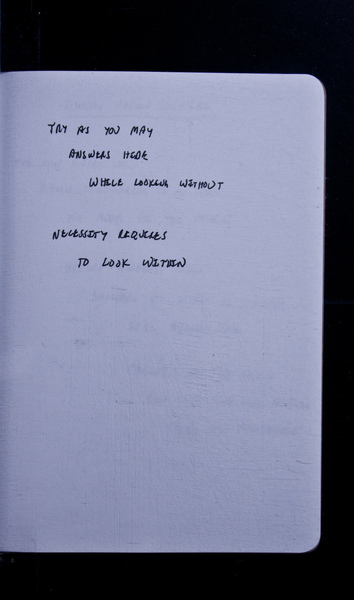 TRY AS YOU MAY
ANSWERS HIDE
WHILE LOOKING WITHOUT
NECESSITY REQUIRES
TO LOOK WITHIN